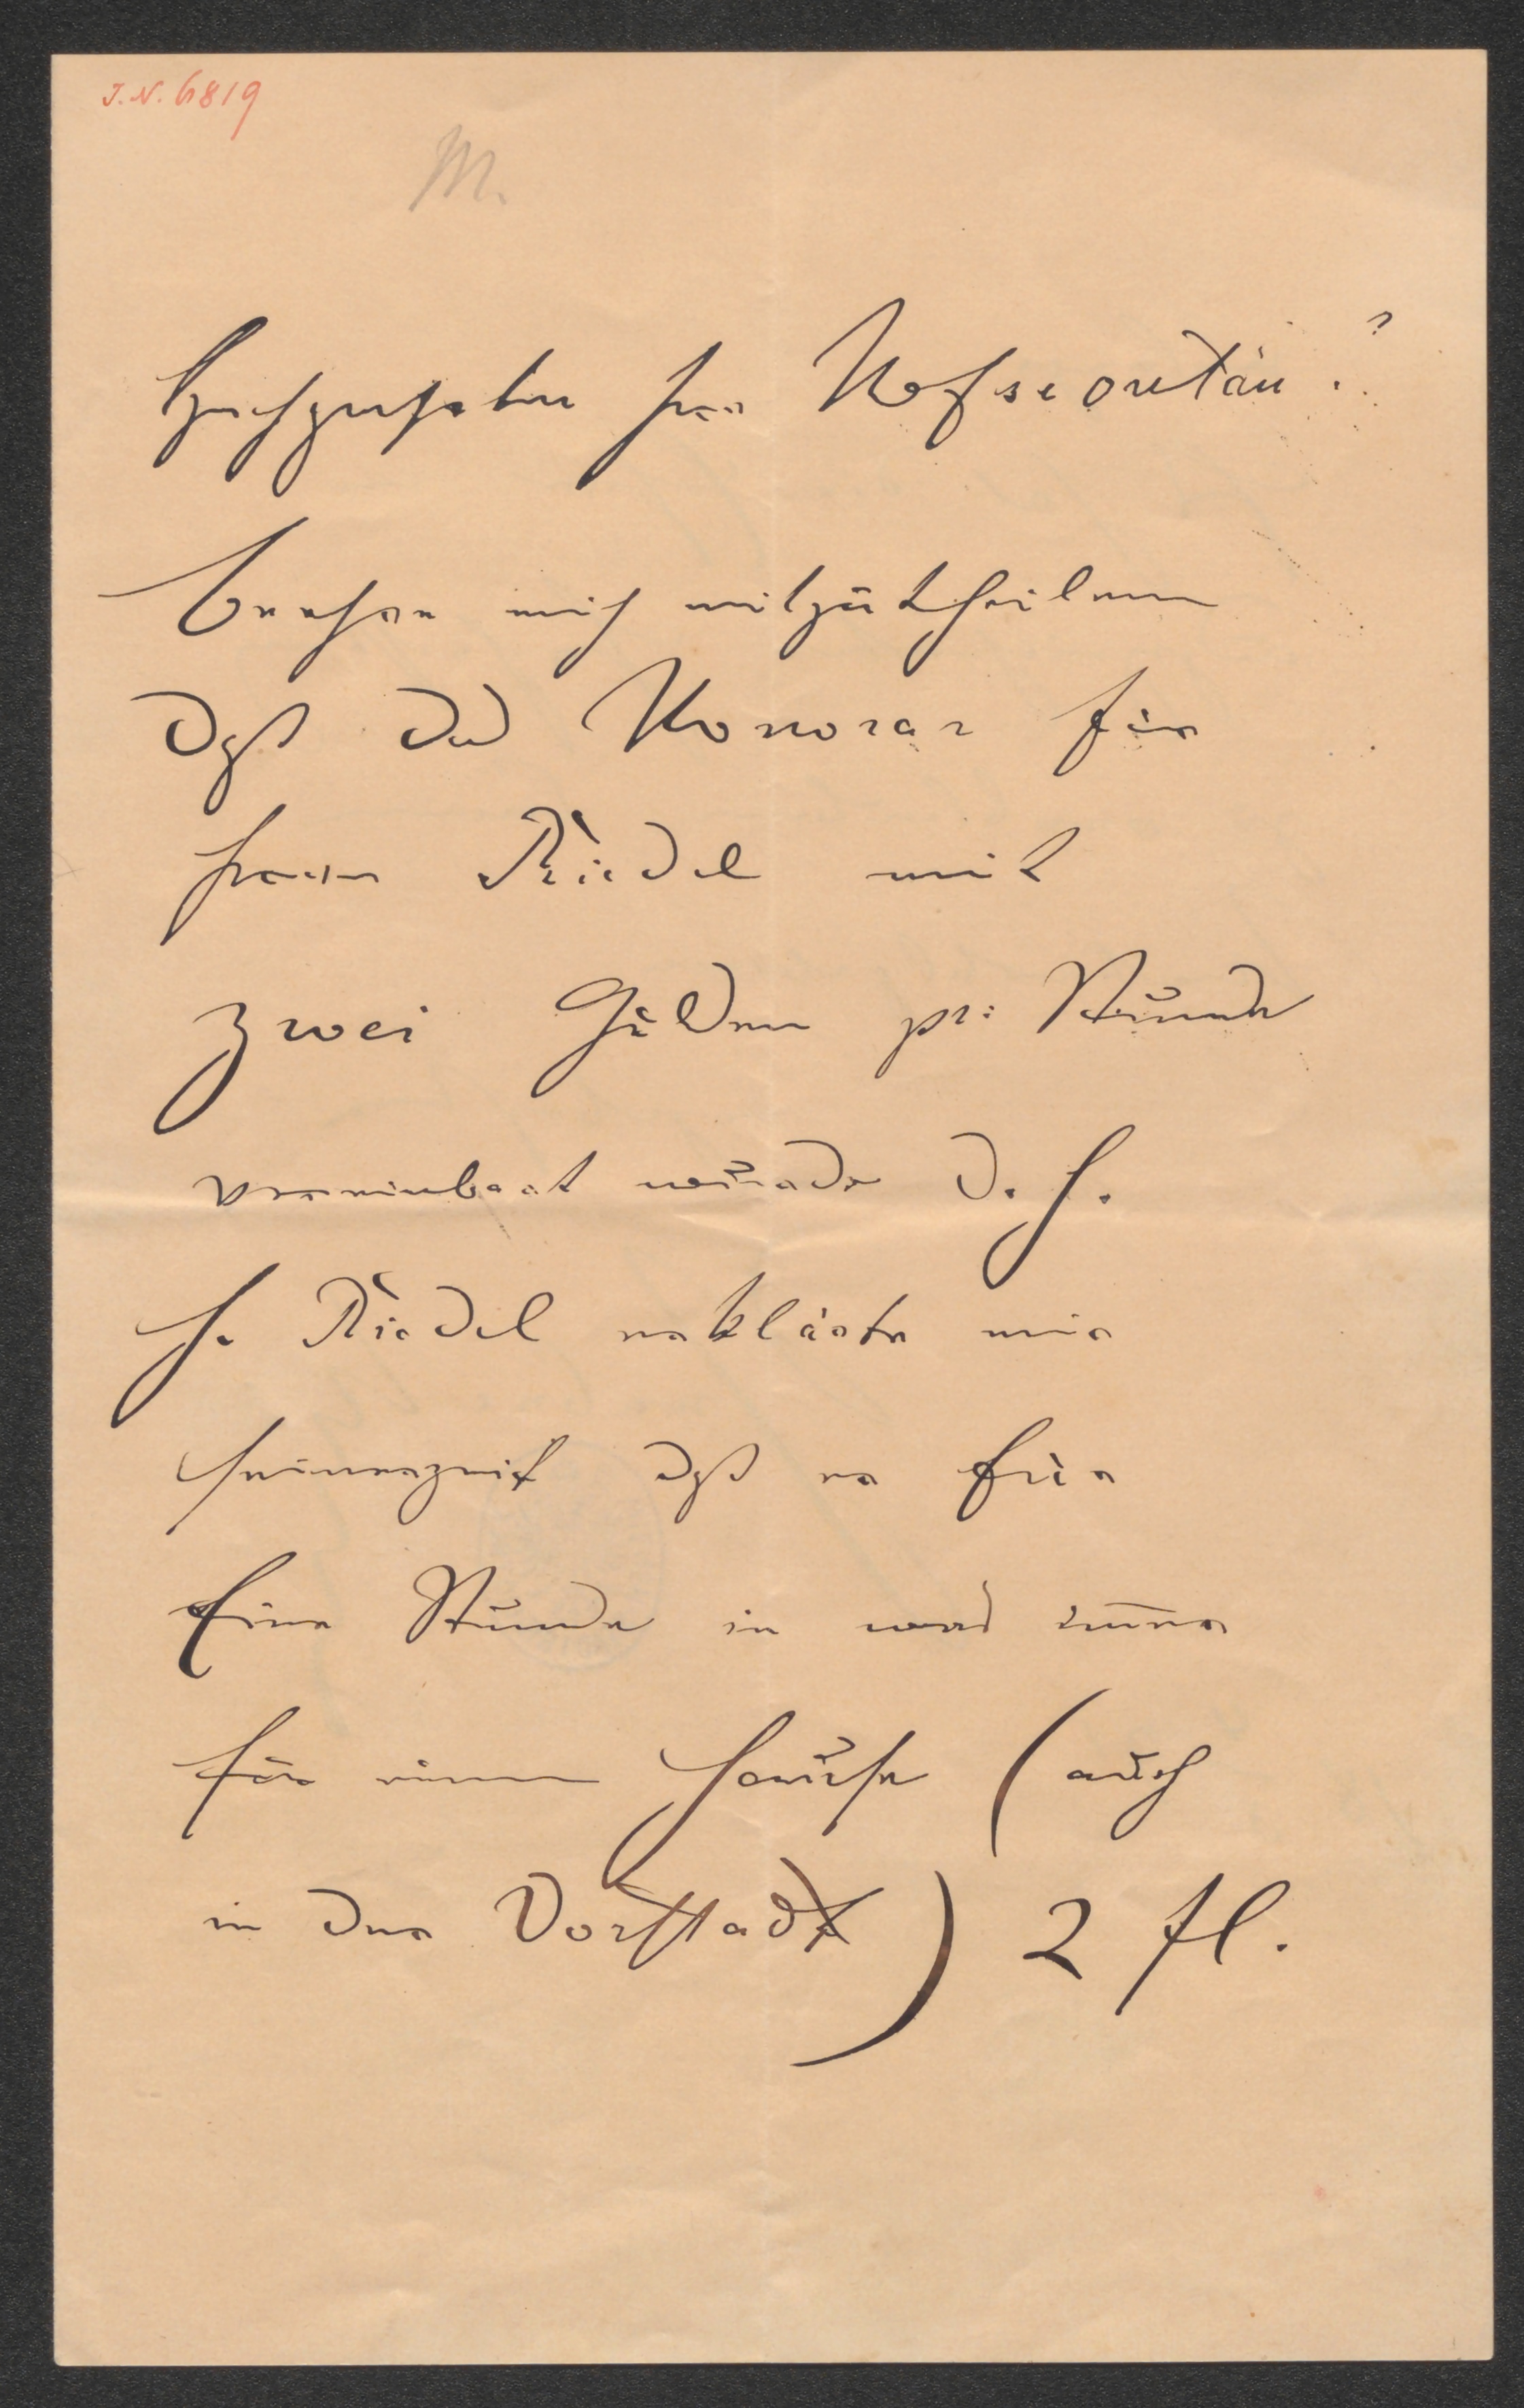 J.N. 6819
M.
Hochgeehrter Herr Hofsecretär!
Beehre mich mitzutheilen
daß das Honorar für
Herrn Riedel mit
zwei Gulden pr: Stunde
vereinbart wurde d. h.
H. Riedel erklärte mir
seinerzeit daß er für
Eine Stunde in was immer
für einem Hause (auch
in der Vorstadt) 2 fl.